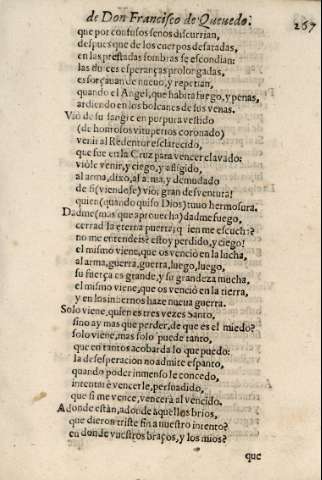 de Don Francisco de Queuedo.
267
que por confusos senos discurrian,
despues que de los cuerpos desatadas,
en las prestadas sombras se escondian:
las dulces esperanças prolongadas,
esforçauan de nueuo, y repetian,
quando el Angel, que habita fuego, y penas,
ardiendo en los bolcanes de sus venas.
Viò de su sangre en purpura vestido
(de honrosos vituperios coronado)
venir al Redentor esclarecido,
que fue en la Cruz para vencer clavado:
viòle venir, y ciego, y afligido,
al arma, dixo, al arma, y demudado
de si (viendose) viò, gran desventura!
quien (quando quiso Dios) tuuo hermosura.
Dadme (mas que aprouecha) dadme fuego,
cerrad la eterna puerta, quien me escucha?
no me entendeis? estoy perdido, y ciego!
el mismo viene, que os venciò en la lucha,
al arma, guerra, guerra, luego, luego,
su fuerça es grande, y su grandeza mucha,
el mismo viene, que os venciò en la tierra,
y en los infiernos haze nueua guerra.
Solo viene, quien es tres vezes Santo,
sino ay mas que perder, de que es el miedo?
solo viene, mas solo puede tanto,
que en tantos acobarda lo que puedo:
la desesperacion no admite espanto,
quando poder inmenso le concedo,
intentarè vencerle, persuadido,
que si me vence, vencerà al vencido.
Adonde estàn, adonde aquellos brios,
que dieron triste fin a nuestro intento?
en donde vuestros braços, y los mios?
que